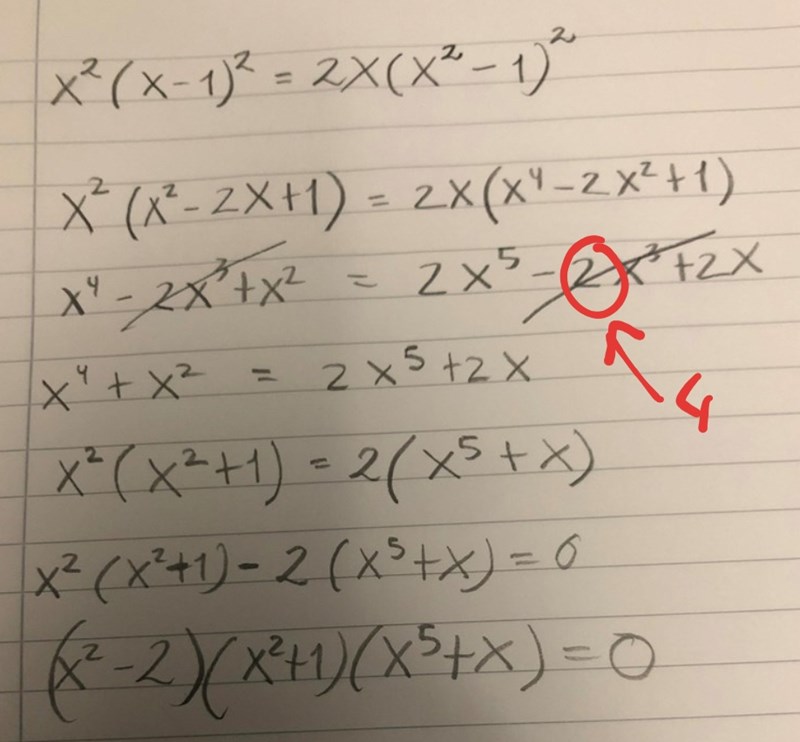 x²(x-1)² = 2x(x²-1)²
x²(x²-2x+1) = 2x(x⁴-2x²+1)
x⁴-2x³+x² = 2x⁵-2x³+2x
4
x⁴+x² = 2x⁵+2x
x²(x²+1) = 2(x⁵+x)
x²(x²+1)-2(x⁵+x)=0
(x²-2)(x²+1)(x⁵+x)=0